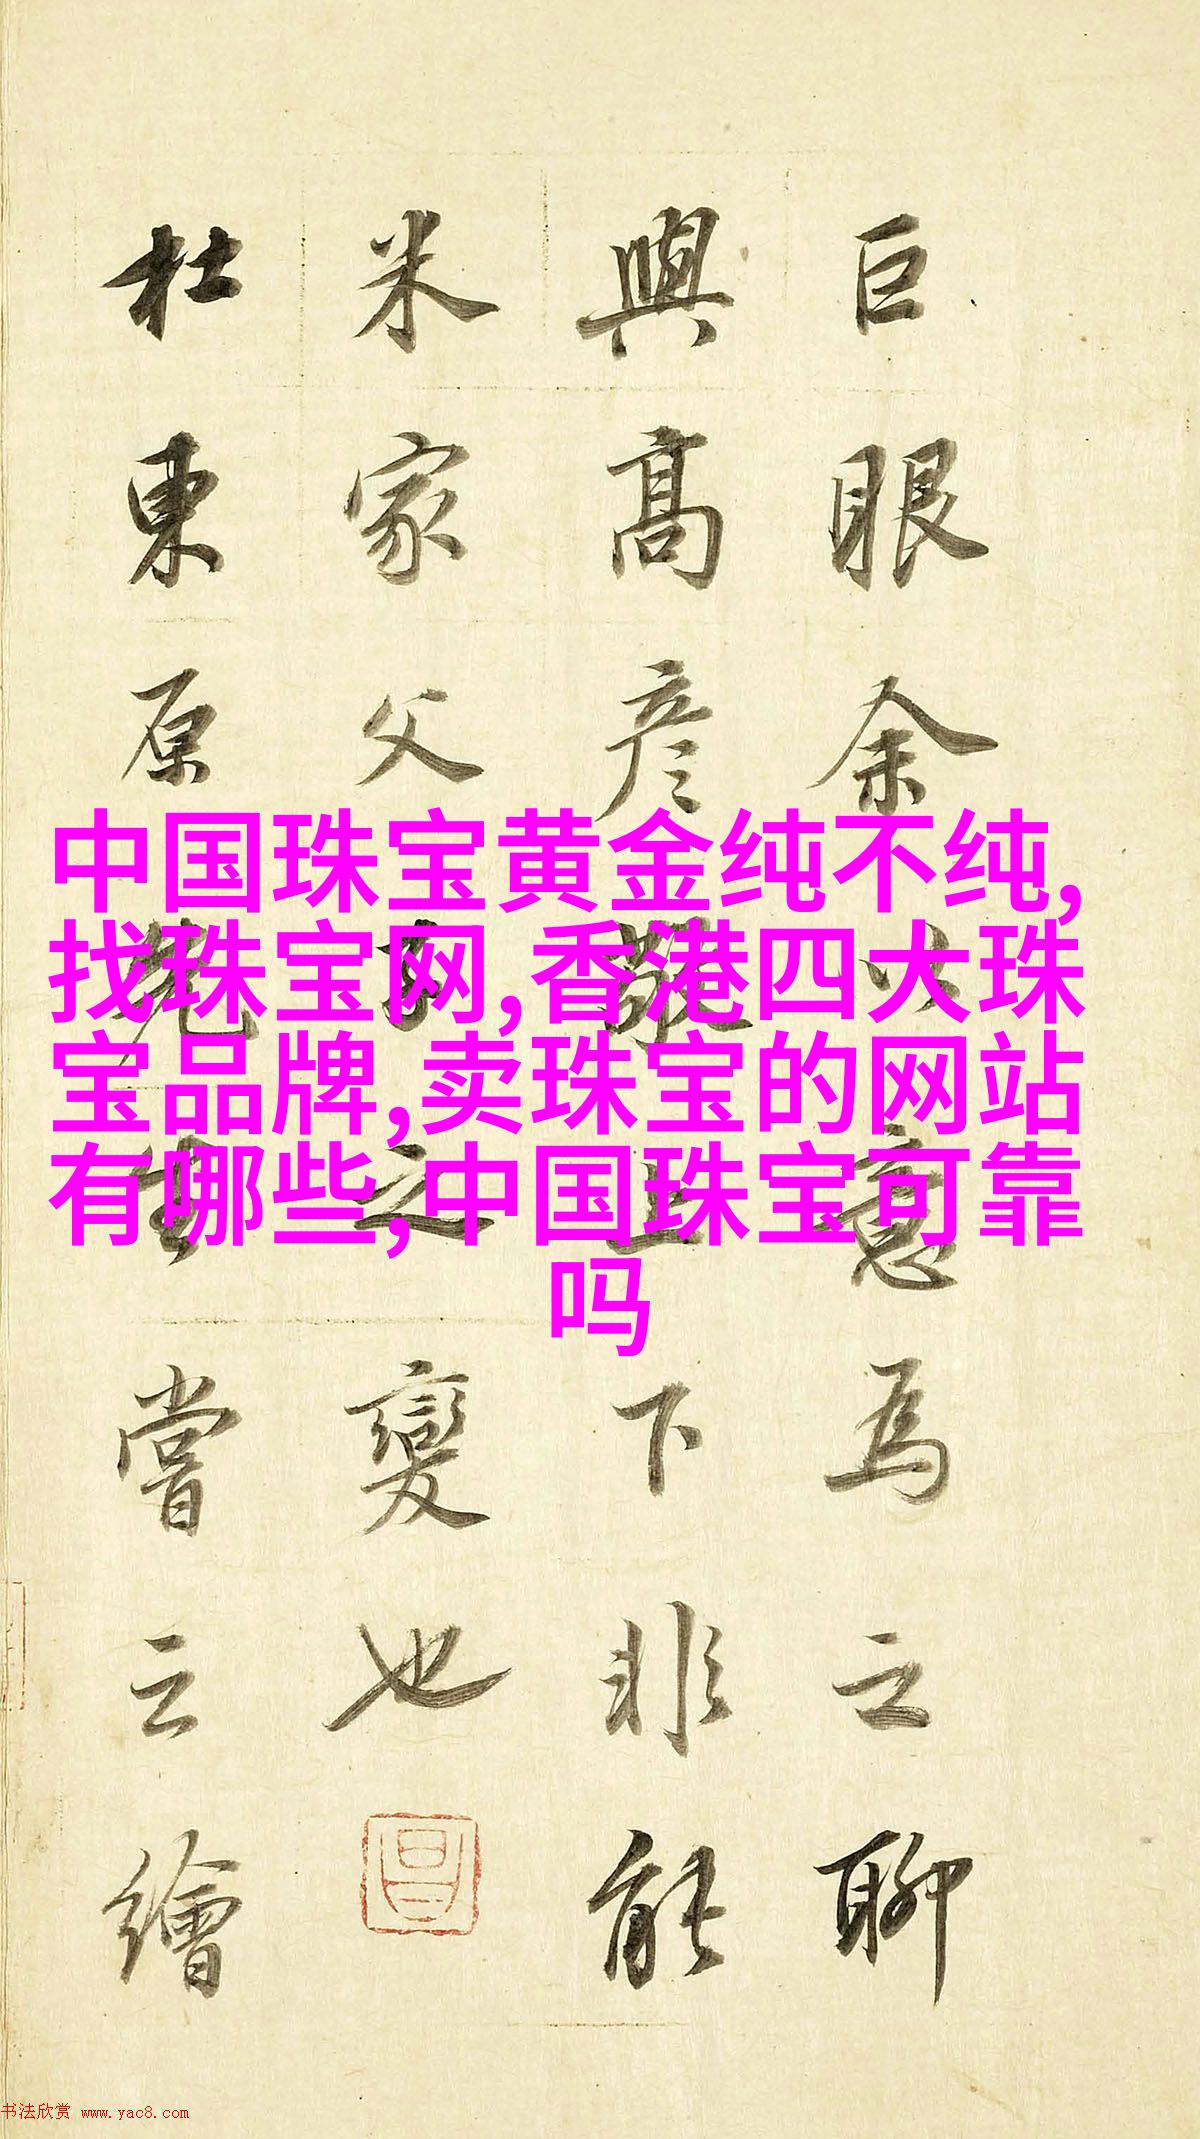 巨眼余以意爲之聊
與高彦敬上下非能
米家父子之變也
杜東原先生嘗云繪
中国珠宝黄金纯不纯,
找珠宝网,香港四大珠
宝品牌,卖珠宝的网站
有哪些,中国珠宝可靠
吗
书法欣赏 www.yac8.com